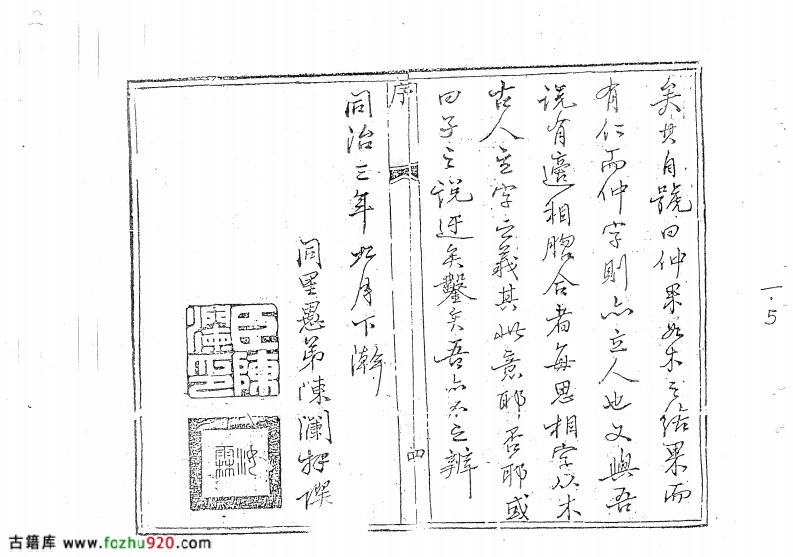 矣其自號曰仲果如木之结果而
有仁而仲字則亦立人也又與吾
说有適相脗合者每思相字从木
古人主字之義其此意耶否耶或
曰子之说迂矣鑿矣吾亦不之辨
序
四
同治三年 月下澣
同里愚弟陳瀾拜譔
一.5
古籍库 www.fozhu920.com